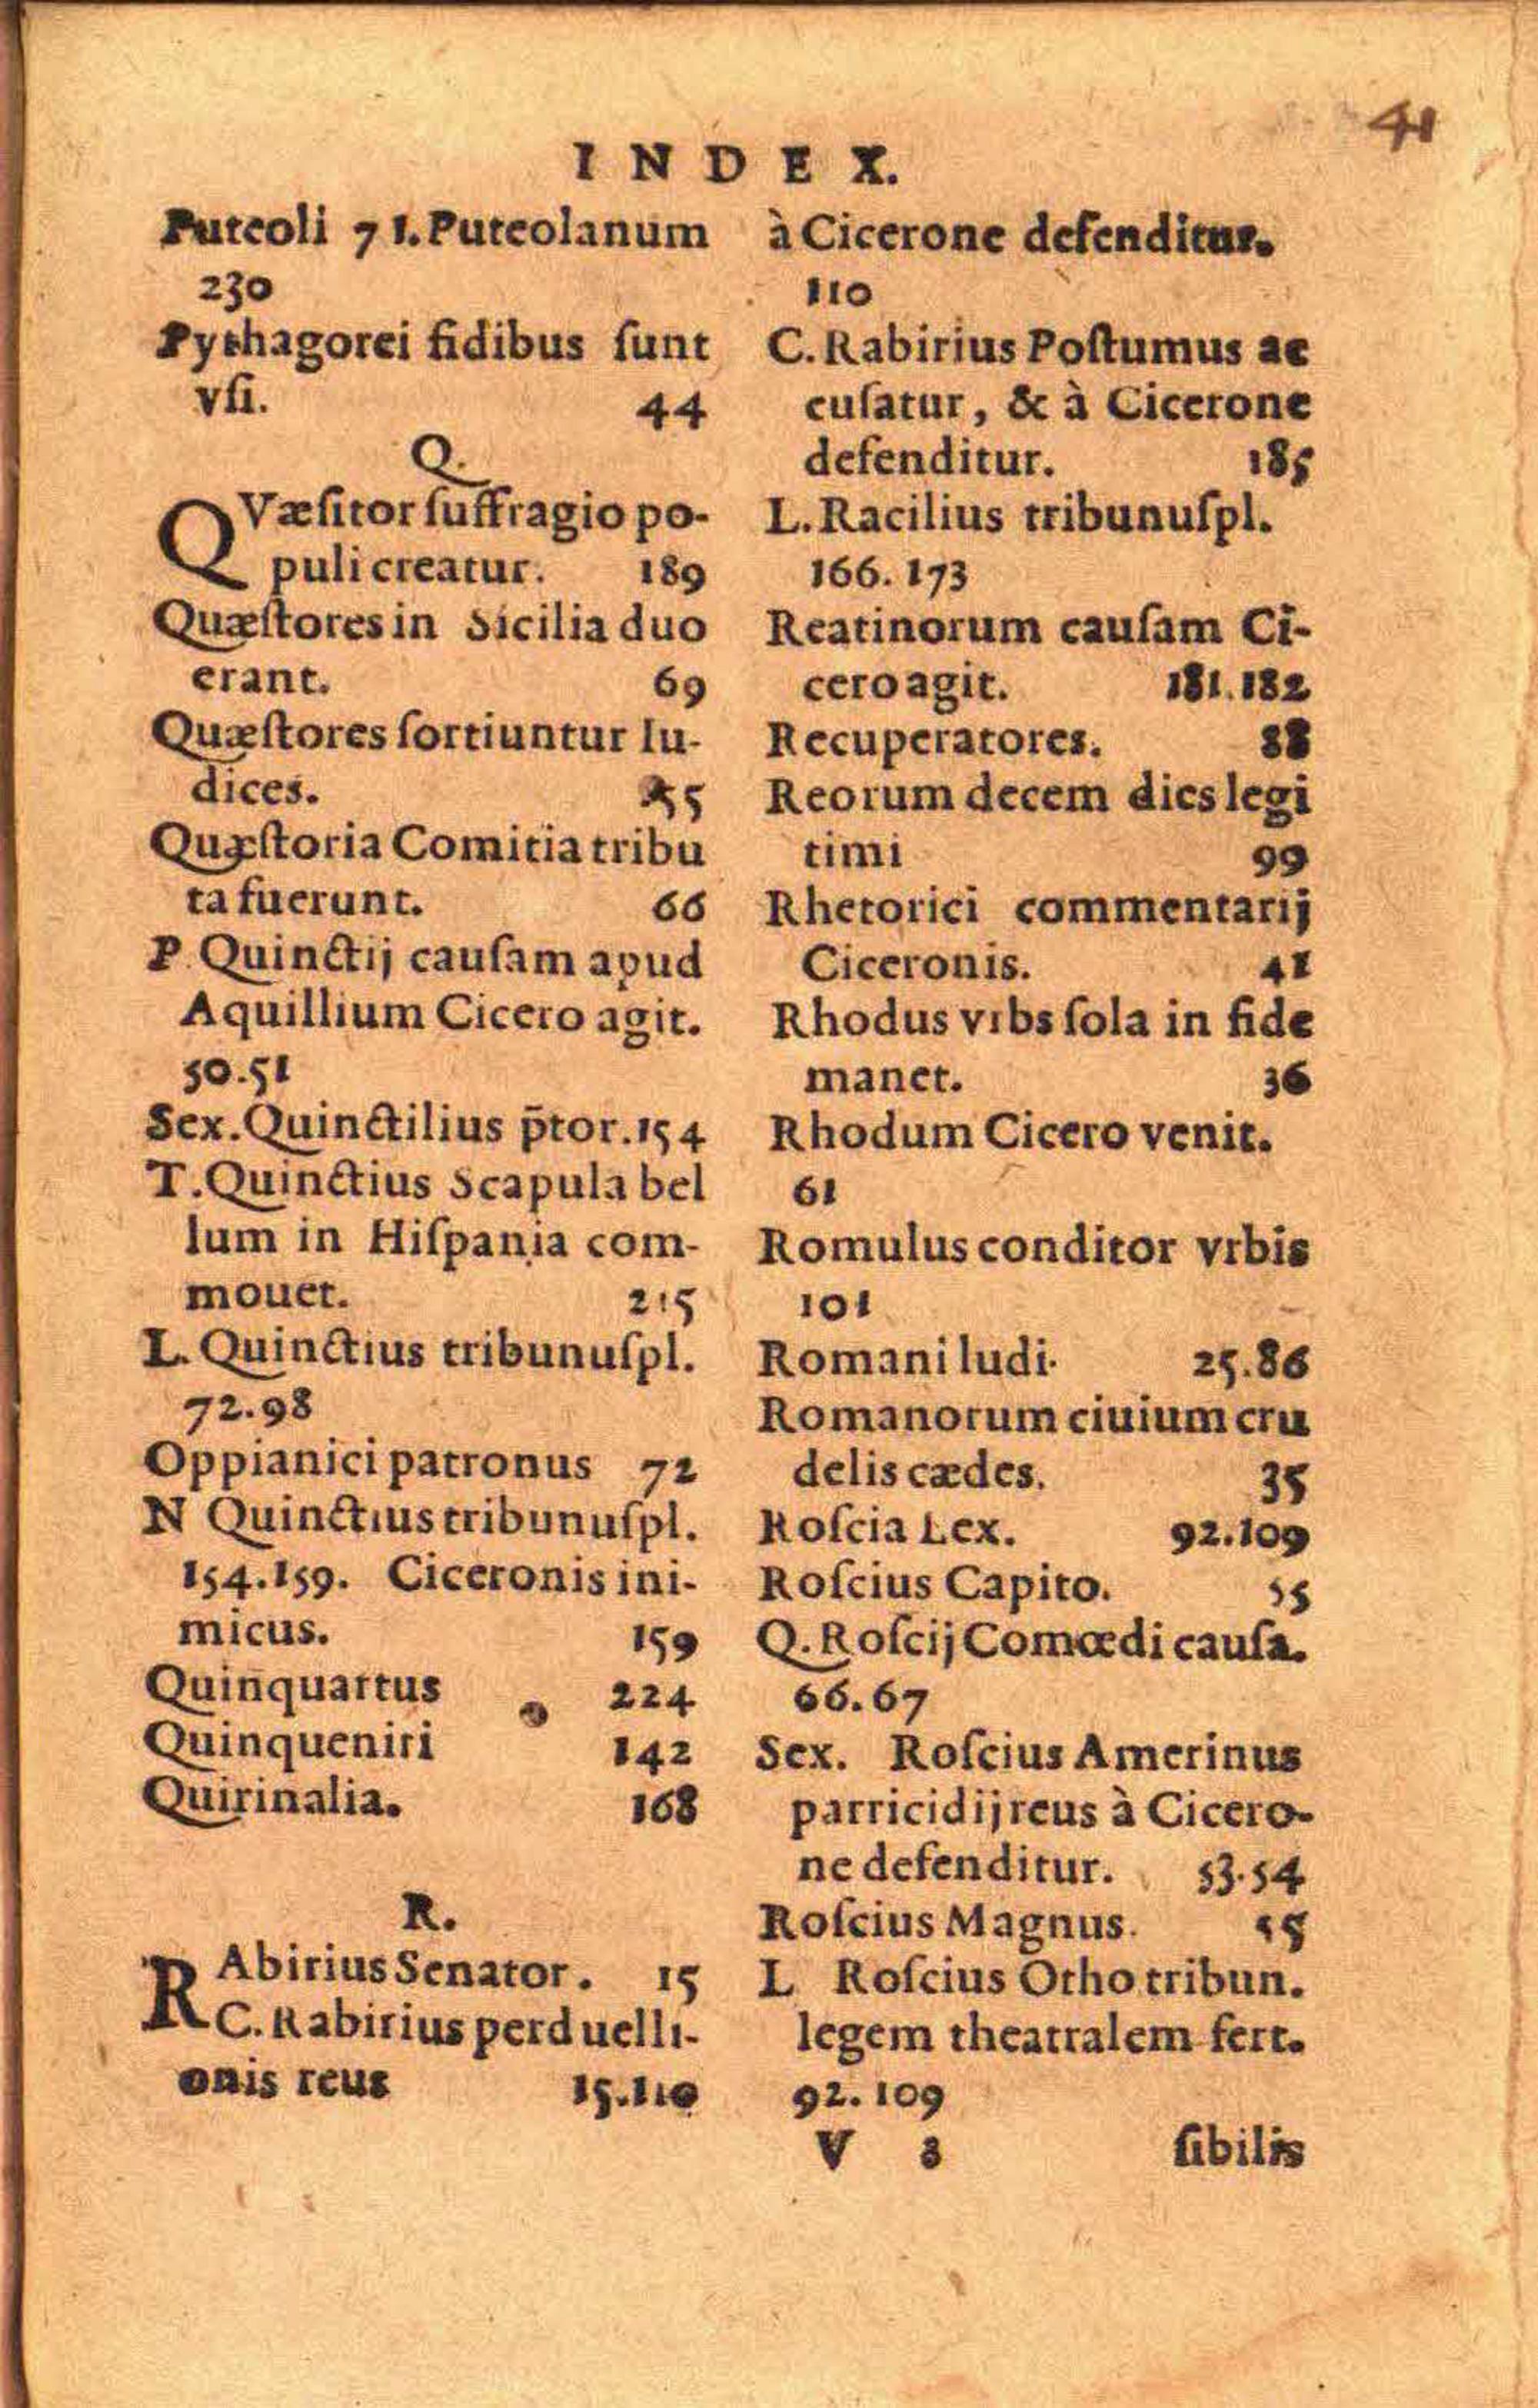 41
INDEX.
Puteoli 71. Puteolanum
230
Pythagorei fidibus ſunt
vſi. 44
Q.
QVæſitor ſuffragio po-
puli creatur. 189
Quæſtores in Sicilia duo
erant. 69
Quæſtores ſortiuntur Iu-
dices. 55
Quæſtoria Comitia tribu
ta fuerunt. 66
P Quinctij cauſam apud
Aquillium Cicero agit.
50.51
Sex. Quinctilius p̄tor. 154
T. Quinctius Scapula bel
lum in Hiſpania com-
mouet. 215
L. Quinctius tribunuſpl.
72.98
Oppianici patronus 72
N Quinctius tribunuſpl.
154.159. Ciceronis ini-
micus. 159
Quinquartus 224
Quinqueniri 142
Quirinalia. 168
R.
RAbirius Senator. 15
C. Rabirius perduelli-
onis reus 15.110
à Cicerone defenditur.
110
C. Rabirius Poſtumus ac
cuſatur, & à Cicerone
defenditur. 185
L. Racilius tribunuſpl.
166.173
Reatinorum cauſam Ci-
cero agit. 181.182
Recuperatores. 88
Reorum decem dies legi
timi 99
Rhetorici commentarij
Ciceronis. 41
Rhodus vrbs ſola in fide
manet. 36
Rhodum Cicero venit.
61
Romulus conditor vrbis
101
Romani ludi. 25.86
Romanorum ciuium cru
delis cædes. 35
Roſcia Lex. 92.109
Roſcius Capito. 55
Q. Roſcij Comœdi cauſa.
66.67
Sex. Roſcius Amerinus
parricidij reus à Cicero-
ne defenditur. 53.54
Roſcius Magnus. 55
L Roſcius Otho tribun.
legem theatralem fert.
92.109
V 3 ſibilis